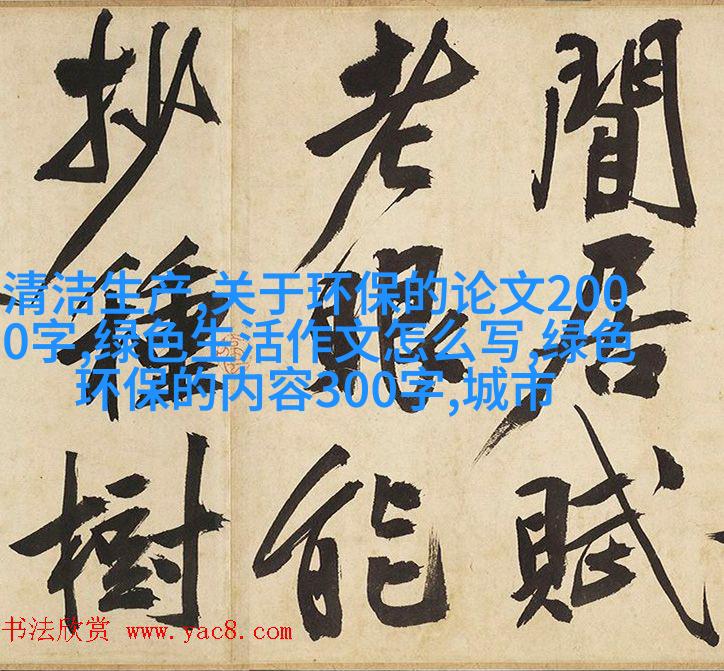 閒居賦
老眼能
抄種樹
清洁生产,关于环保的论文200
0字,绿色生活作文怎么写,绿色
环保的内容300字,城市
书法欣赏 www.yac8.com